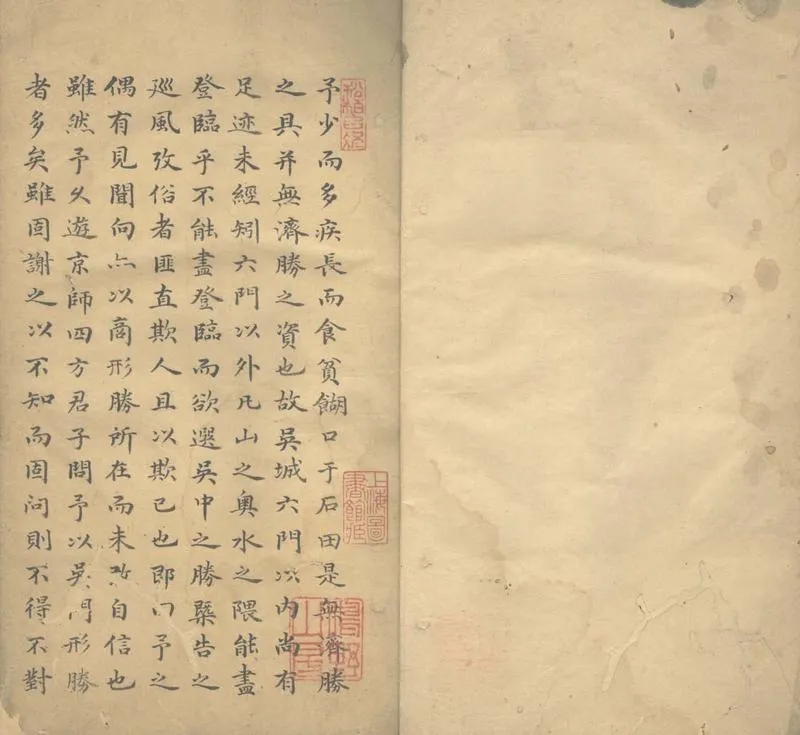 予少而多疾長而食貧餬口于石田是無齊勝
之具并無濟勝之資也故吳城六門以内尚有
足迹未經矧六門以外凡山之奧水之隈能盡
登臨乎不能盡登臨而欲選吳中之勝槩告之
廵風攷俗者匪直欺人且以欺己也即予之
偶有見聞向亦以商形勝所在而未敢自信也
雖然予久遊京師四方君子問予以吳門形勝
者多矣雖固謝之以不知而固问則不得不對
上海圖
書館藏